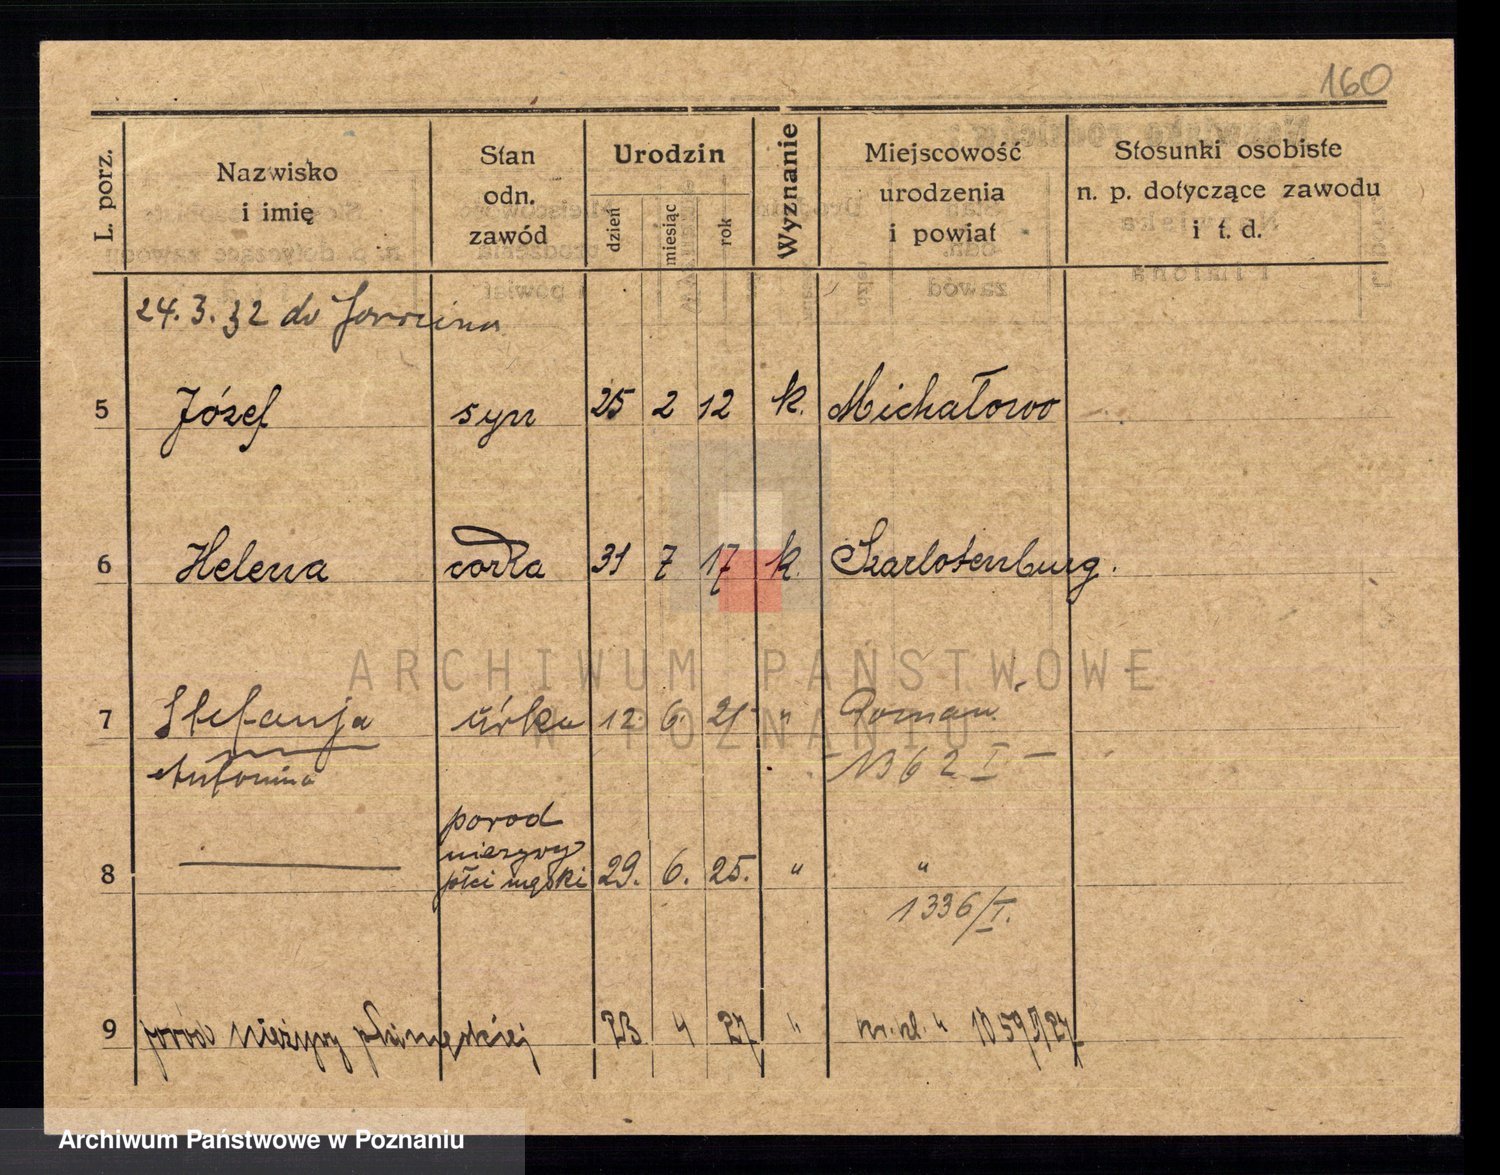 160
L. porz.
Nazwisko
i imię
Stan
odn.
zawód
Urodzin
dzień
miesiąc
rok
Wyznanie
Miejscowość
urodzenia
i powiat
Stosunki osobiste
n. p. dotyczące zawodu
i t. d.
24. 3. 32 do
5 Józef syn 25 2 12 k. Michałowo
6 Helena corka 31 7 17 k. Szarlotenburg.
7 Stefanja córka 12. 6. 21 " Poznań
Antonina 1362 I
poród
nieżywy
8 płci męski 29. 6. 25. " "
1336/I.
9 poród nieżywy płci męskiej 23 4 27 " " 1059/I/27
ARCHIWUM PAŃSTWOWE
W POZNANIU
Archiwum Państwowe w Poznaniu